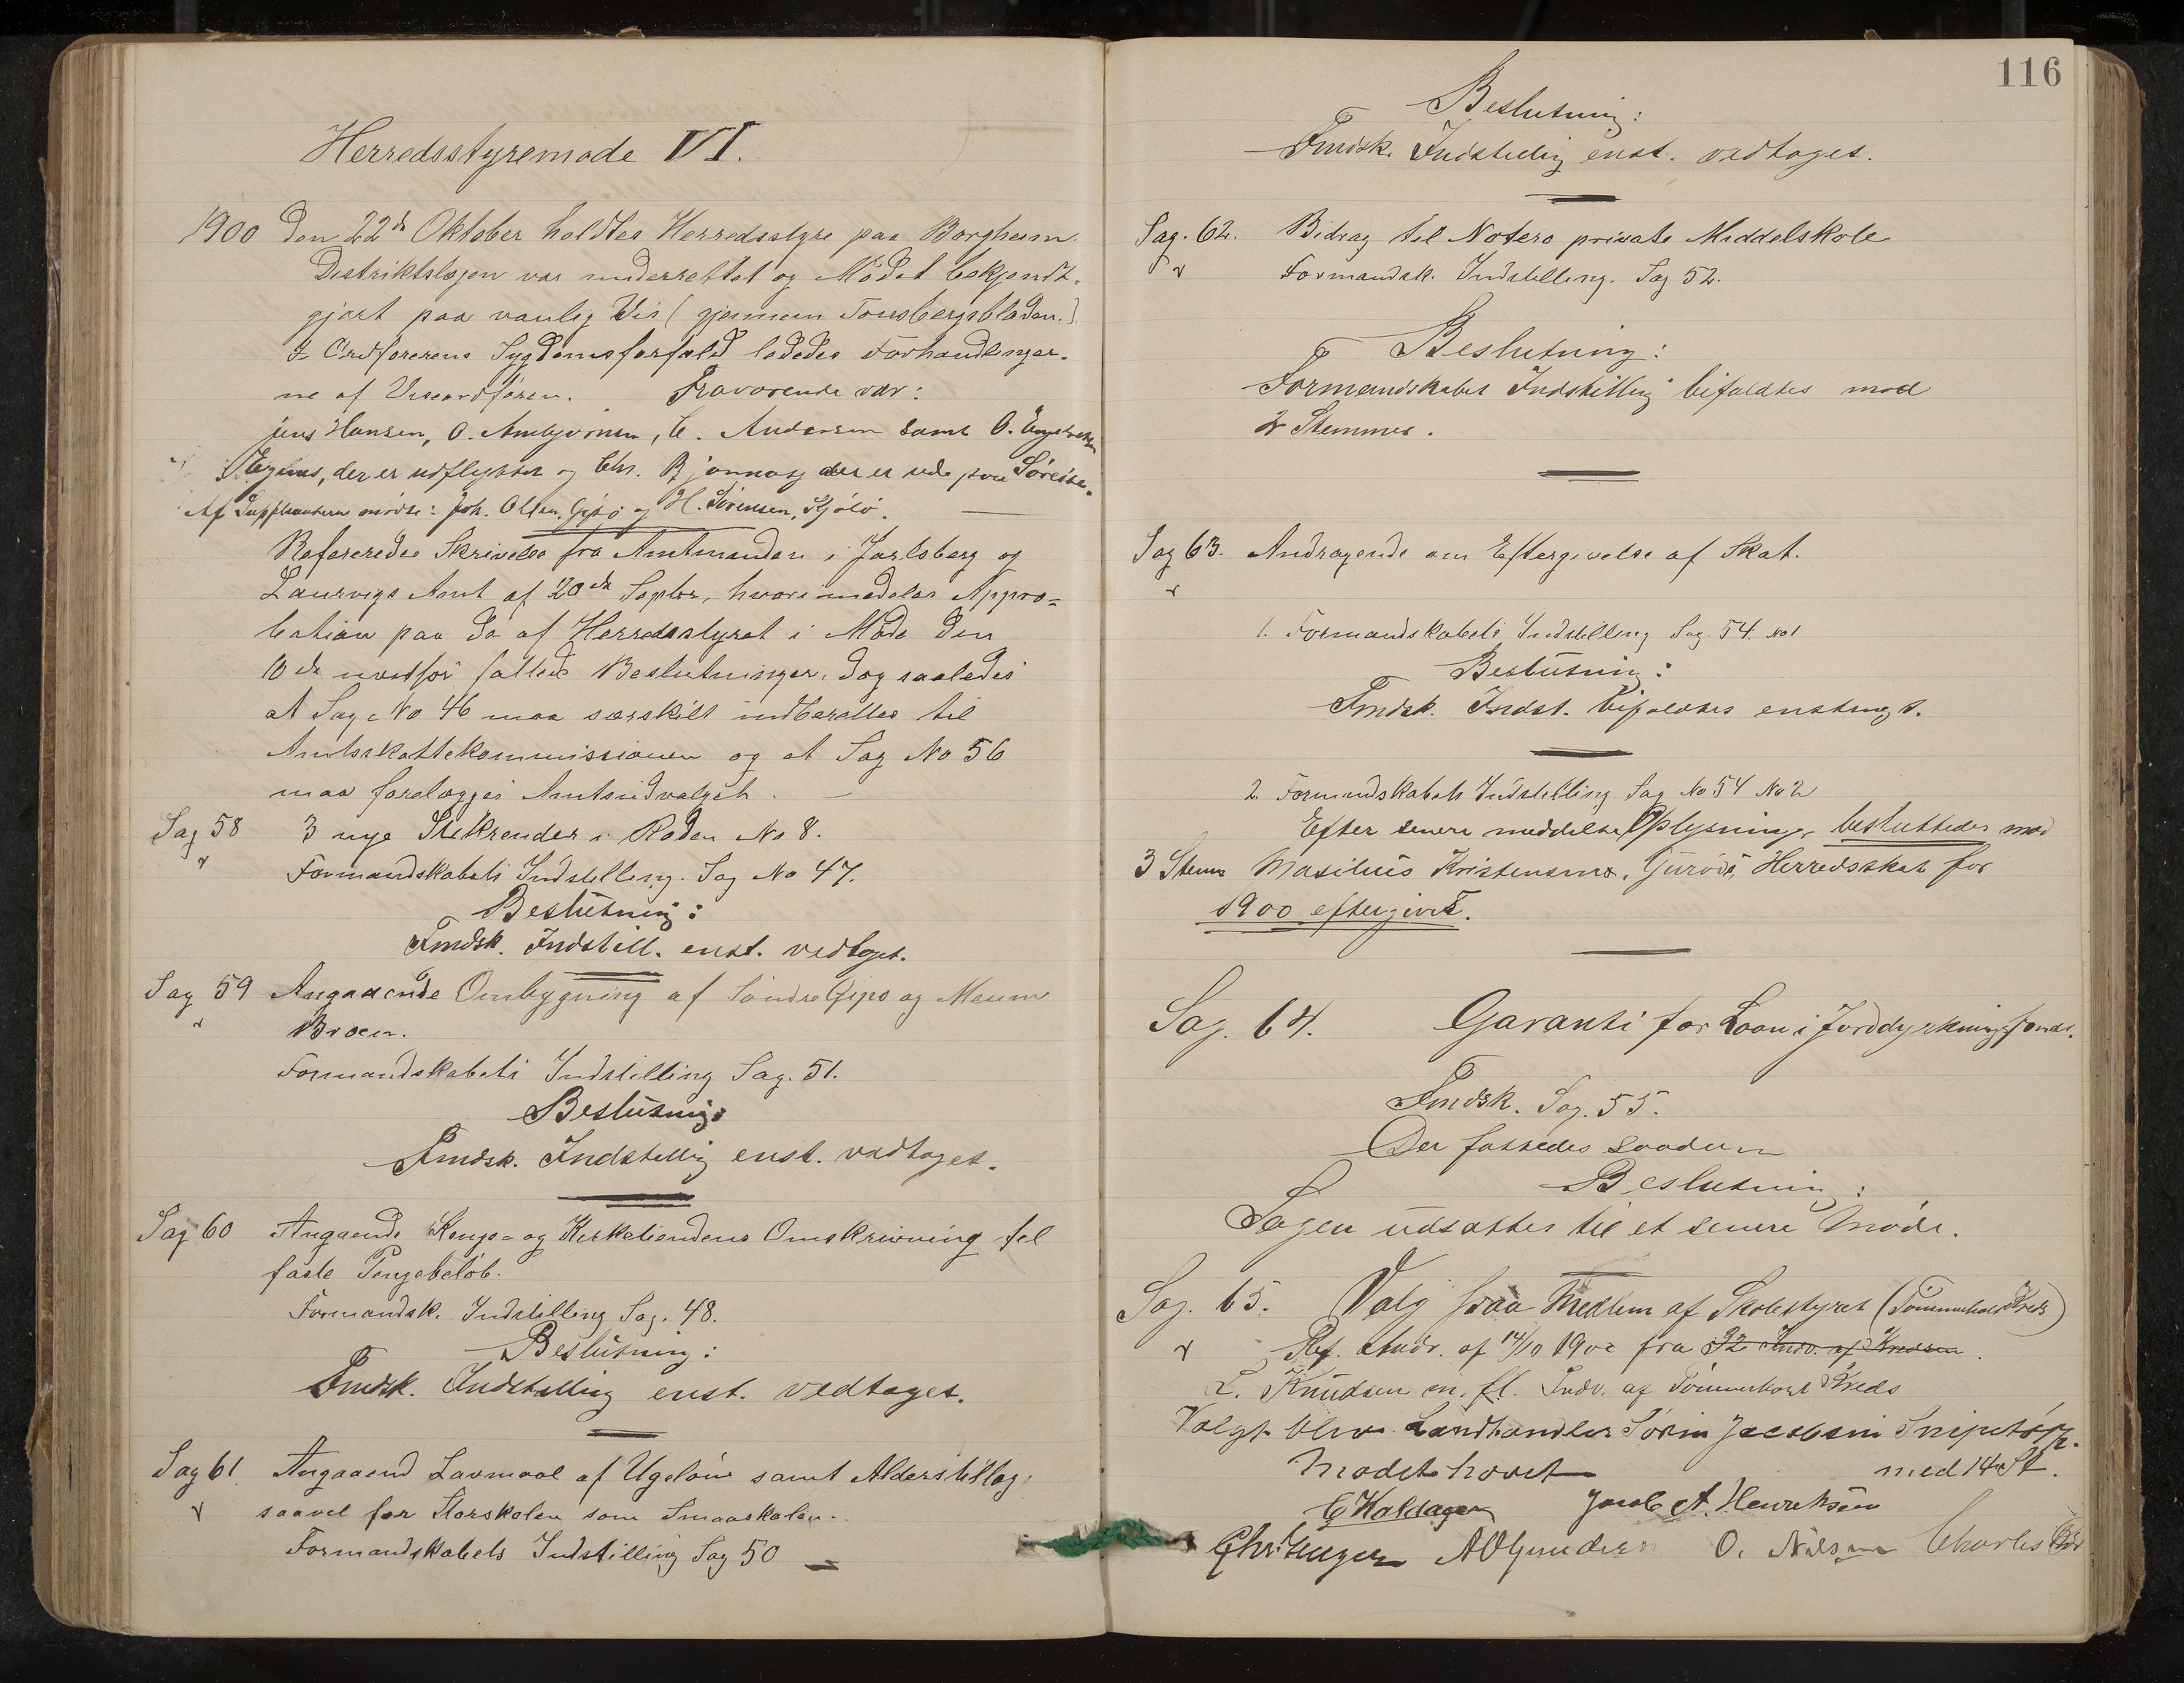 Herredsstyremøde VI.
1900 Den 22de Oktober holdtes Herredsstyre paa Borgheim.
Distriktslægen var underrettet og Mødet bekjendt-
gjort paa vanlig Vis (gjennem Tønsbergsbladen.)
I Ordførerens Sygdomsforfald lededes Forhandlinger-
ne af Viseordføren. Fraværende var:
Jens Hansen, O. Ambjørnsen, C. Andersen samt O. Engebretsen
der er udflyttet og Chr. Bjønnæs der er ude paa Søreise.
Af Suppleanterne mødte: Joh. Olsen, Gipø og H. Sørensen, Kjølø.
Refereredes Skrivelse fra Amtmanden i Jarlsberg og
Laurvigs Amt af 20de Septbr, hvori meddeles Appro=
bation paa de af Herredsstyret i Møde den
10de næstfør fattede Beslutninger, dog saaledes
at Sag No 46 maa særskilt indberettes til
Amtsskattekommissionen og at Sag No 56
maa forelægges Amtsudvalget.
Sag 58 3 nye Stikrender i Roden No 8.
Formandskabets Indstilling. Sag No 47.
Beslutning:
Fmdsk. Indstill. enst. vedtaget.
Sag 59 Angaaende Ombygning af Søndre Gipø og Meum
Broen.
Formandskabets Indstilling Sag. 51.
Beslutning:
Fmdsk. Indstillig enst. vedtaget.
Sag 60 Angaende Konge- og Kirketiendens Omskrivning til
faste Pengebeløb.
Formandsk. Indstilling Sag. 48.
Beslutning:
Fmdsk. Indstilling enst. vedtaget.
Sag 61 Angaaend Lavmaal af Ugeløn samt Alderstillæg,
saavel for Storskolen som Smaaskolen.
Formandskabets Indstilling Sag 50
116
Beslutning:
Fmdsk. Indstillig enst. vedtaget.
Sag. 62. Bidrag til Nøterø private Middelskole
Formandsk. Indstilling. Sag 52.
Beslutning:
Formandskabet Indstillig bifaldtes mod
2 Stemmer.
Sag 63. Andragende om Eftergivelse af Skat.
1. Formandskabets Indstilling Sag. 54. No 1
Beslutning:
Fmdsk. Indst. bifaldtes enstmgt.
2. Formandskabets Indstilling Sag No 54 No 2
Efter senere meddelte Oplysninger besluttedes mod
3 Stemr Maxilius Kristensens, Herredsskat for
1900 eftergivet.
Sag. 64. Garanti for Laan i Jorddyrkningsfonds.
Fmdsk. Sag. 55.
Der fattedes saadan
Beslutning:
Sagen udsættes til et senere Møde.
Sag. 65. Valg paa Medlem af Skolestyret (Tømmerholt Kreds)
Ref. Andr. af 14/10 1900 fra 32 Indv. af Kredsen.
L. Knudsen m. fl. Indv. af Tømmerholt Kreds
Valgt blev Landhandler Sørin Jacobsen Snipetorp.
med 14 St.
Mødet hævet
Jacob A. Henriksen
O. Nilsen Charles